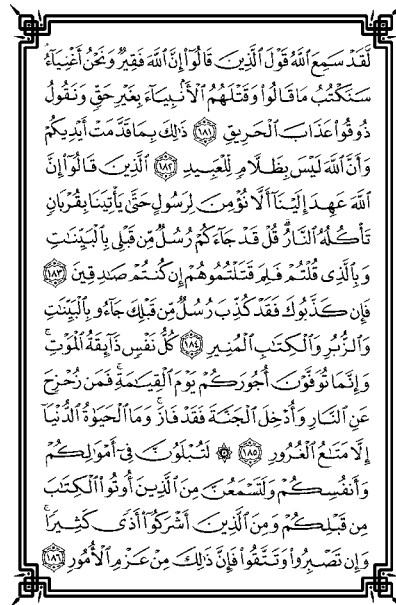 لَّقَدْ سَمِعَ ٱللَّهُ قَوْلَ ٱلَّذِينَ قَالُوٓاْ إِنَّ ٱللَّهَ فَقِيرٌ وَنَحْنُ أَغْنِيَآءُ
سَنَكْتُبُ مَا قَالُواْ وَقَتْلَهُمُ ٱلْأَنۢبِيَآءَ بِغَيْرِ حَقٍّ وَنَقُولُ
ذُوقُواْ عَذَابَ ٱلْحَرِيقِ ١٨١ ذَٰلِكَ بِمَا قَدَّمَتْ أَيْدِيكُمْ
وَأَنَّ ٱللَّهَ لَيْسَ بِظَلَّامٍ لِّلْعَبِيدِ ١٨٢ ٱلَّذِينَ قَالُوٓاْ إِنَّ
ٱللَّهَ عَهِدَ إِلَيْنَآ أَلَّا نُؤْمِنَ لِرَسُولٍ حَتَّىٰ يَأْتِيَنَا بِقُرْبَانٍ
تَأْكُلُهُ ٱلنَّارُ ۗ قُلْ قَدْ جَآءَكُمْ رُسُلٌ مِّن قَبْلِى بِٱلْبَيِّنَٰتِ
وَبِٱلَّذِى قُلْتُمْ فَلِمَ قَتَلْتُمُوهُمْ إِن كُنتُمْ صَٰدِقِينَ ١٨٣
فَإِن كَذَّبُوكَ فَقَدْ كُذِّبَ رُسُلٌ مِّن قَبْلِكَ جَآءُو بِٱلْبَيِّنَٰتِ
وَٱلزُّبُرِ وَٱلْكِتَٰبِ ٱلْمُنِيرِ ١٨٤ كُلُّ نَفْسٍ ذَآئِقَةُ ٱلْمَوْتِ ۗ
وَإِنَّمَا تُوَفَّوْنَ أُجُورَكُمْ يَوْمَ ٱلْقِيَٰمَةِ ۖ فَمَن زُحْزِحَ
عَنِ ٱلنَّارِ وَأُدْخِلَ ٱلْجَنَّةَ فَقَدْ فَازَ ۗ وَمَا ٱلْحَيَوٰةُ ٱلدُّنْيَآ
إِلَّا مَتَٰعُ ٱلْغُرُورِ ١٨٥ ۞ لَتُبْلَوُنَّ فِىٓ أَمْوَٰلِكُمْ
وَأَنفُسِكُمْ وَلَتَسْمَعُنَّ مِنَ ٱلَّذِينَ أُوتُواْ ٱلْكِتَٰبَ
مِن قَبْلِكُمْ وَمِنَ ٱلَّذِينَ أَشْرَكُوٓاْ أَذًى كَثِيرًا ۚ
وَإِن تَصْبِرُواْ وَتَتَّقُواْ فَإِنَّ ذَٰلِكَ مِنْ عَزْمِ ٱلْأُمُورِ ١٨٦